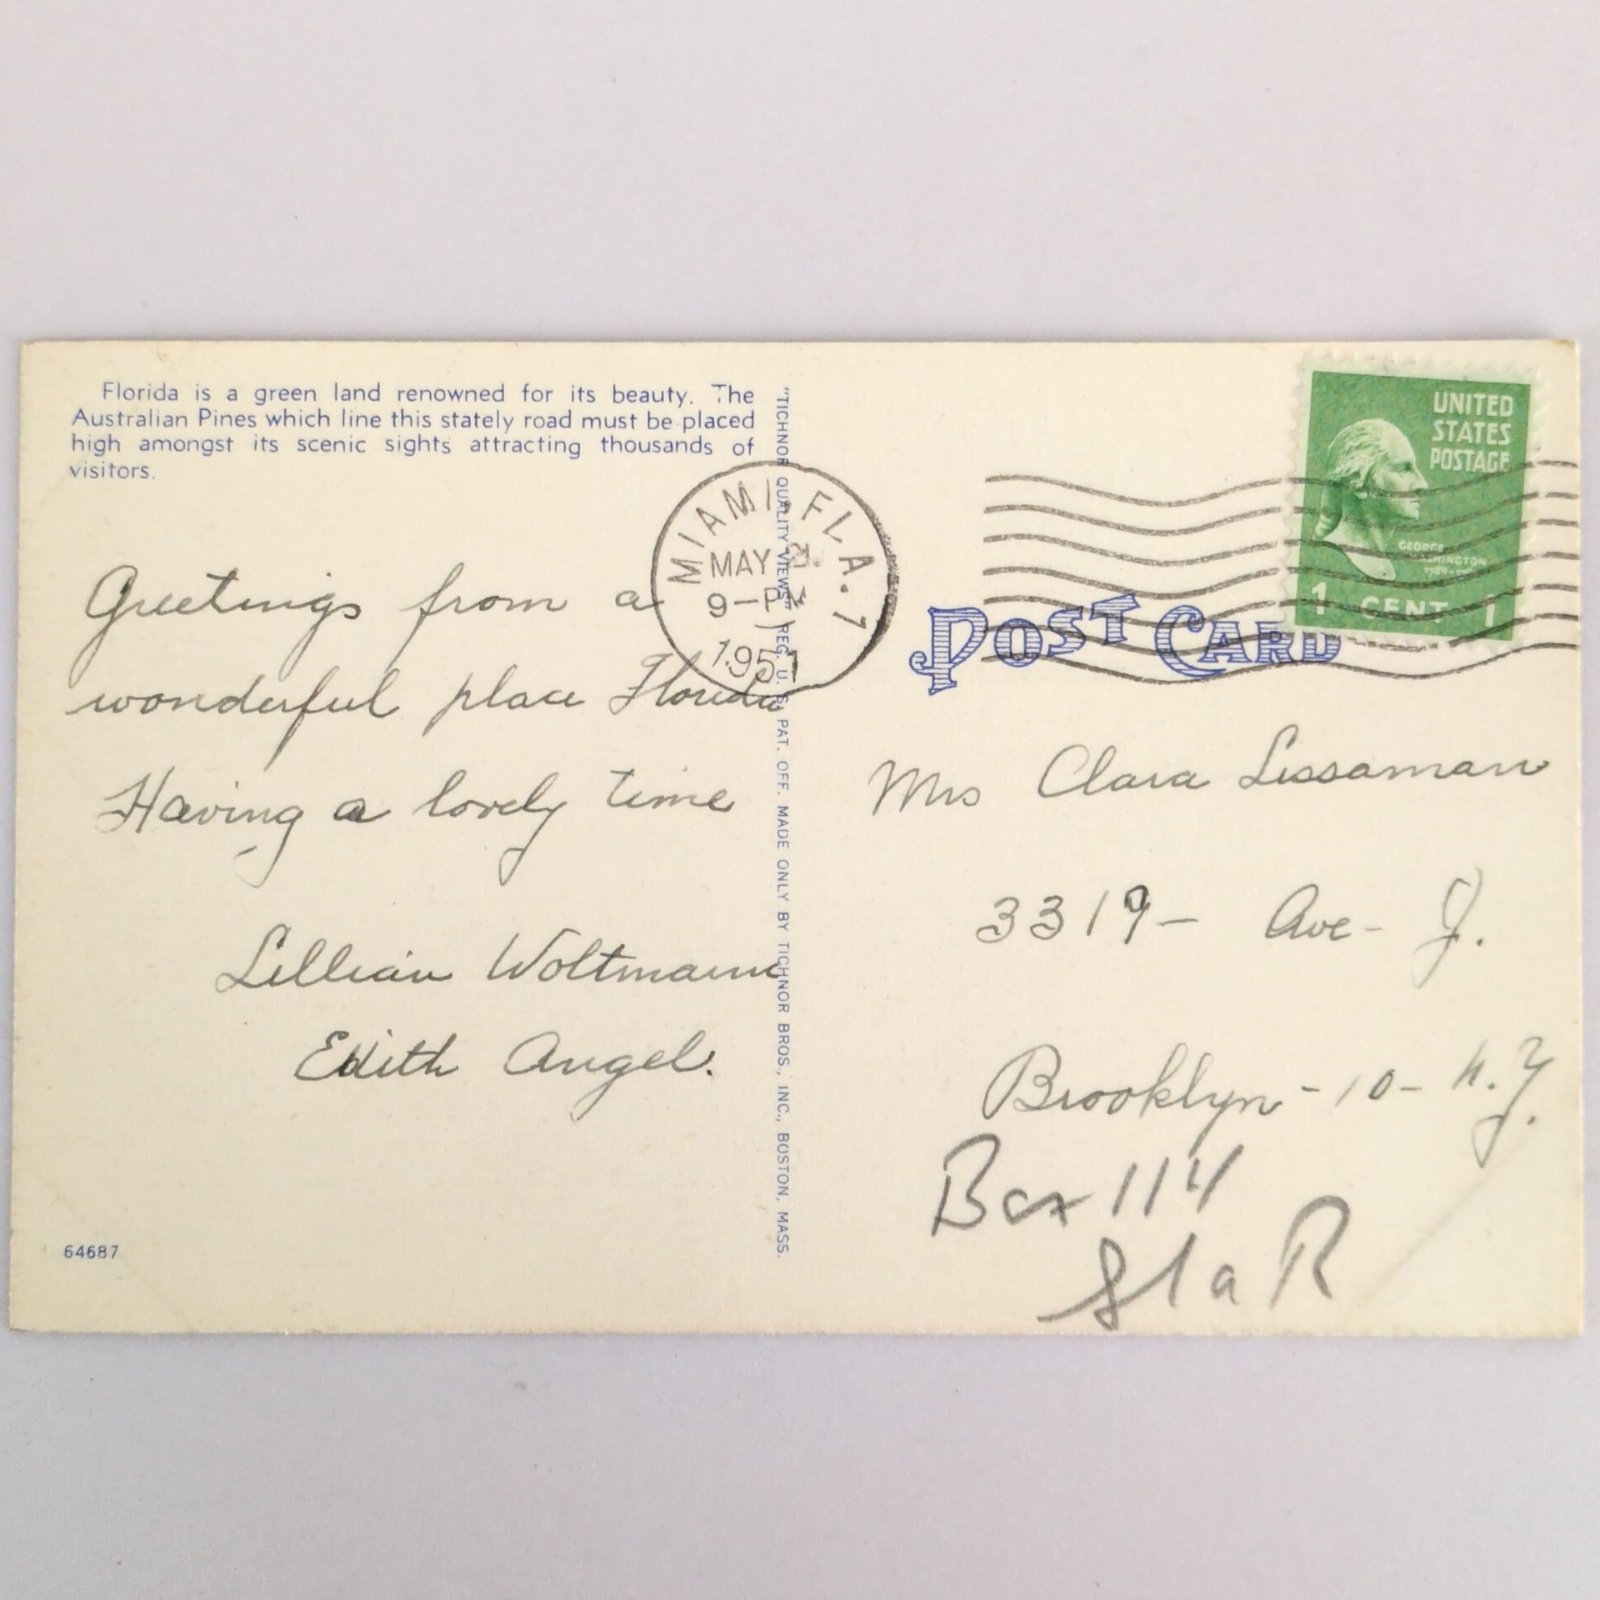 Florida is a green land renowned for its beauty. The
Australian Pines which line this stately road must be placed
high amongst its scenic sights attracting thousands of
visitors.
Greetings from a
wonderful place Florida
Having a lovely time
Lillian Woltmann
Edith Angel.
64687
"TICHNOR QUALITY VIEWS" REG. U. S. PAT. OFF. MADE ONLY BY TICHNOR BROS., INC., BOSTON, MASS.
MIAMI, FLA. 7
MAY
9-PM
1951
UNITED
STATES
POSTAGE
GEORGE
WASHINGTON
1 CENT 1
POST CARD
Mrs Clara Lissaman
3319- Ave- J.
Brooklyn-10- N.Y.
Box 114
Sta R